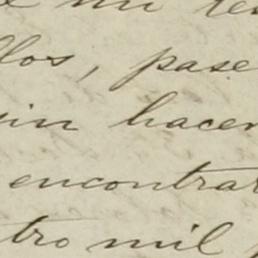 e mi te
llos, pase
sin hacer
encontrar
tro mil